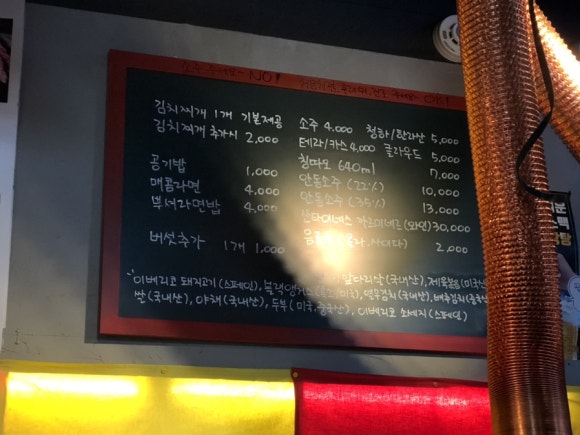 소주 NO!
김치찌개 1개 기본제공
김치찌개 추가시 2,000
공기밥 1,000
매콤라면 4,000
뿌녀라면밥 4,000
버섯추가 1개 1,000
소주 4,000 청하/한라산 5,000
테라/카스 4,000 클라우드 5,000
칭따오 640ml 7,000
안동소주 (22%) 10,000
안동소주 (35%) 13,000
까르미네르 (와인) 30,000
사이다) 2,000
이베리코 돼지고기(스페인), 블랙앵거스 앞다리살(국내산), 제육볶음(미국
쌀(국내산), 야채(국내산), 두부(미국,중국산), 열무김치(국내산), 배추김치(중국산
이베리코 소세지(스페인)